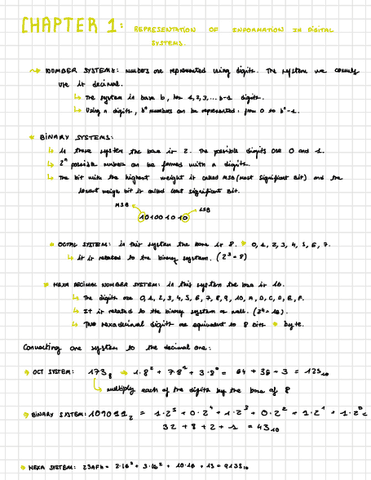 CHAPTER 1: REPRESENTATION OF INFORMATION IN DIGITAL
SYSTEMS.
NUMBER SYSTEMS: numbers are represented using digits. The system we commonly
use is decimal.
↳ The system is base b, has 1, 2, 3, ... b-1 digits.
↳ Using n digits, bⁿ numbers can be represented, from 0 to bⁿ-1.
BINARY SYSTEMS:
↳ In these system the base is 2. The possible digits are 0 and 1.
↳ 2ⁿ possible numbers can be formed with n digits.
↳ The bit with the highest weight is called MSB (most significant bit) and the
lowest weigh bit is called least significant bit.
MSB LSB
1010010 10
OCTAL SYSTEM: in this system the base is 8. 0, 1, 2, 3, 4, 5, 6, 7.
↳ it is related to the binary system. (2³ = 8)
HEXA DECIMAL NUMBER SYSTEM: in this system the base is 16.
↳ The digits are 0, 1, 2, 3, 4, 5, 6, 7, 8, 9, 10, A, B, C, D, E, F.
↳ It is related to the binary system as well. (2⁴ = 16).
↳ Two hexadecimal digits are equivalent to 8 bits byte.
Converting one system to the decimal one:
OCT SYSTEM: 173₈ → 1·8² + 7·8¹ + 3·8⁰ = 64 + 56 + 3 = 123₁₀
↳ multiply each of the digits by the base of 8
BINARY SYSTEM: 101011₂ = 1·2⁵ + 0·2⁴ + 1·2³ + 0·2² + 1·2¹ + 1·2⁰ =
32 + 8 + 2 + 1 = 43₁₀
HEXA SYSTEM: = 2·16³ + 3·16² + 10·16 + 13 = 9133₁₀